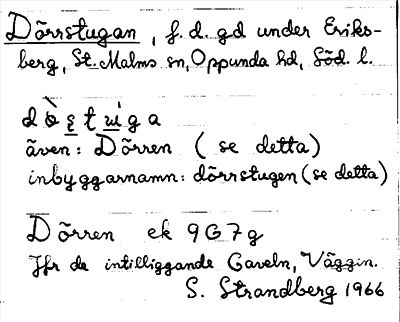 Dörrstugan, f. d. gd under Eriks-
berg, St. Malms sn, Oppunda hd, Söd. l.
dö̀ṣṭu̇ga
även: Dörren (se detta)
inbyggarnamn: dörrstugen (se detta)
Dörren ek 9G7g
Jfr de intilliggande Gaveln, Väggin.
S. Strandberg 1966